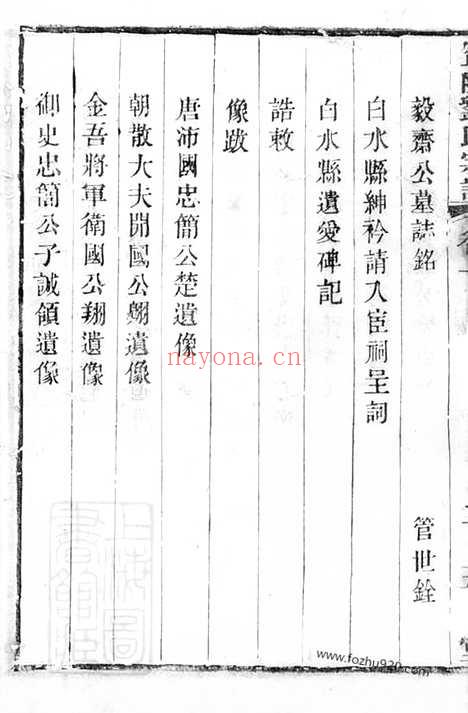 毅齋公墓誌銘 管世銓
白水縣紳衿請入宦祠呈詞
白水縣遺愛碑記
誥敕
像跋
唐沛國忠簡公楚遺像
朝散大夫開國公翺遺像
金吾將軍衛國公翔遺像
御史忠簡公子誠領遺像
nayona.cn
上海圖書館藏
www.fozhu920.com